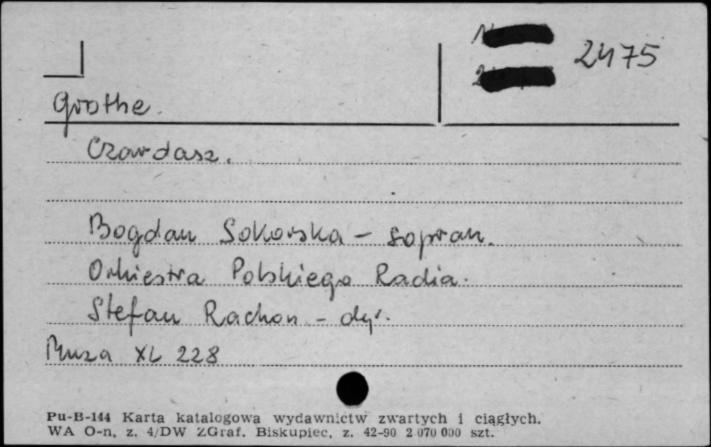 2475
Grothe.
Czardasz.
Bogdan Sokorska - sopran.
Orkiestra Polskiego Radia.
Stefan Rachon - dyr.
Muza XL 228
Pu-B-144 Karta katalogowa wydawnictw zwartych i ciągłych.
WA O-n, z. 4/DW ZGraf. Biskupiec, z. 42-90 2 070 000 szt.